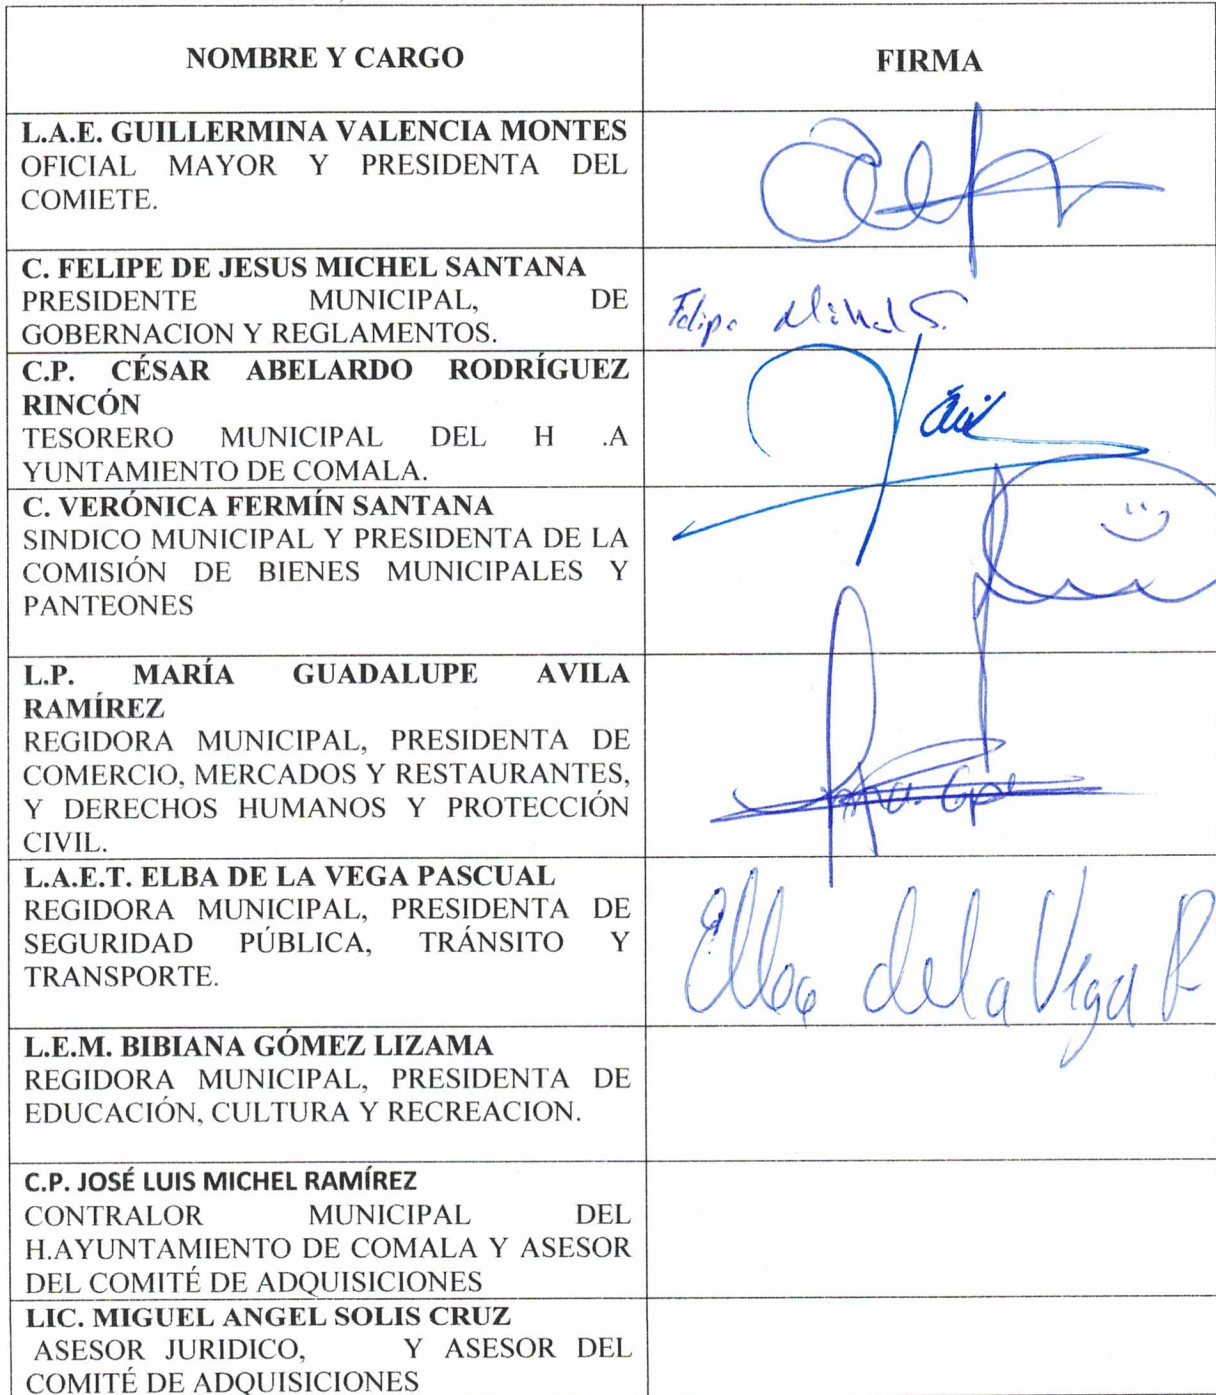 NOMBRE Y CARGO
FIRMA
L.A.E. GUILLERMINA VALENCIA MONTES
OFICIAL MAYOR Y PRESIDENTA DEL
COMIETE.
C. FELIPE DE JESUS MICHEL SANTANA
PRESIDENTE MUNICIPAL, DE
GOBERNACION Y REGLAMENTOS.
Felipe Michel S.
C.P. CÉSAR ABELARDO RODRÍGUEZ
RINCÓN
TESORERO MUNICIPAL DEL H .A
YUNTAMIENTO DE COMALA.
C. VERÓNICA FERMÍN SANTANA
SINDICO MUNICIPAL Y PRESIDENTA DE LA
COMISIÓN DE BIENES MUNICIPALES Y
PANTEONES
L.P. MARÍA GUADALUPE AVILA
RAMÍREZ
REGIDORA MUNICIPAL, PRESIDENTA DE
COMERCIO, MERCADOS Y RESTAURANTES,
Y DERECHOS HUMANOS Y PROTECCIÓN
CIVIL.
Ma. Gpe
L.A.E.T. ELBA DE LA VEGA PASCUAL
REGIDORA MUNICIPAL, PRESIDENTA DE
SEGURIDAD PÚBLICA, TRÁNSITO Y
TRANSPORTE.
Elba de la Vega P
L.E.M. BIBIANA GÓMEZ LIZAMA
REGIDORA MUNICIPAL, PRESIDENTA DE
EDUCACIÓN, CULTURA Y RECREACION.
C.P. JOSÉ LUIS MICHEL RAMÍREZ
CONTRALOR MUNICIPAL DEL
H.AYUNTAMIENTO DE COMALA Y ASESOR
DEL COMITÉ DE ADQUISICIONES
LIC. MIGUEL ANGEL SOLIS CRUZ
ASESOR JURIDICO, Y ASESOR DEL
COMITÉ DE ADQUISICIONES